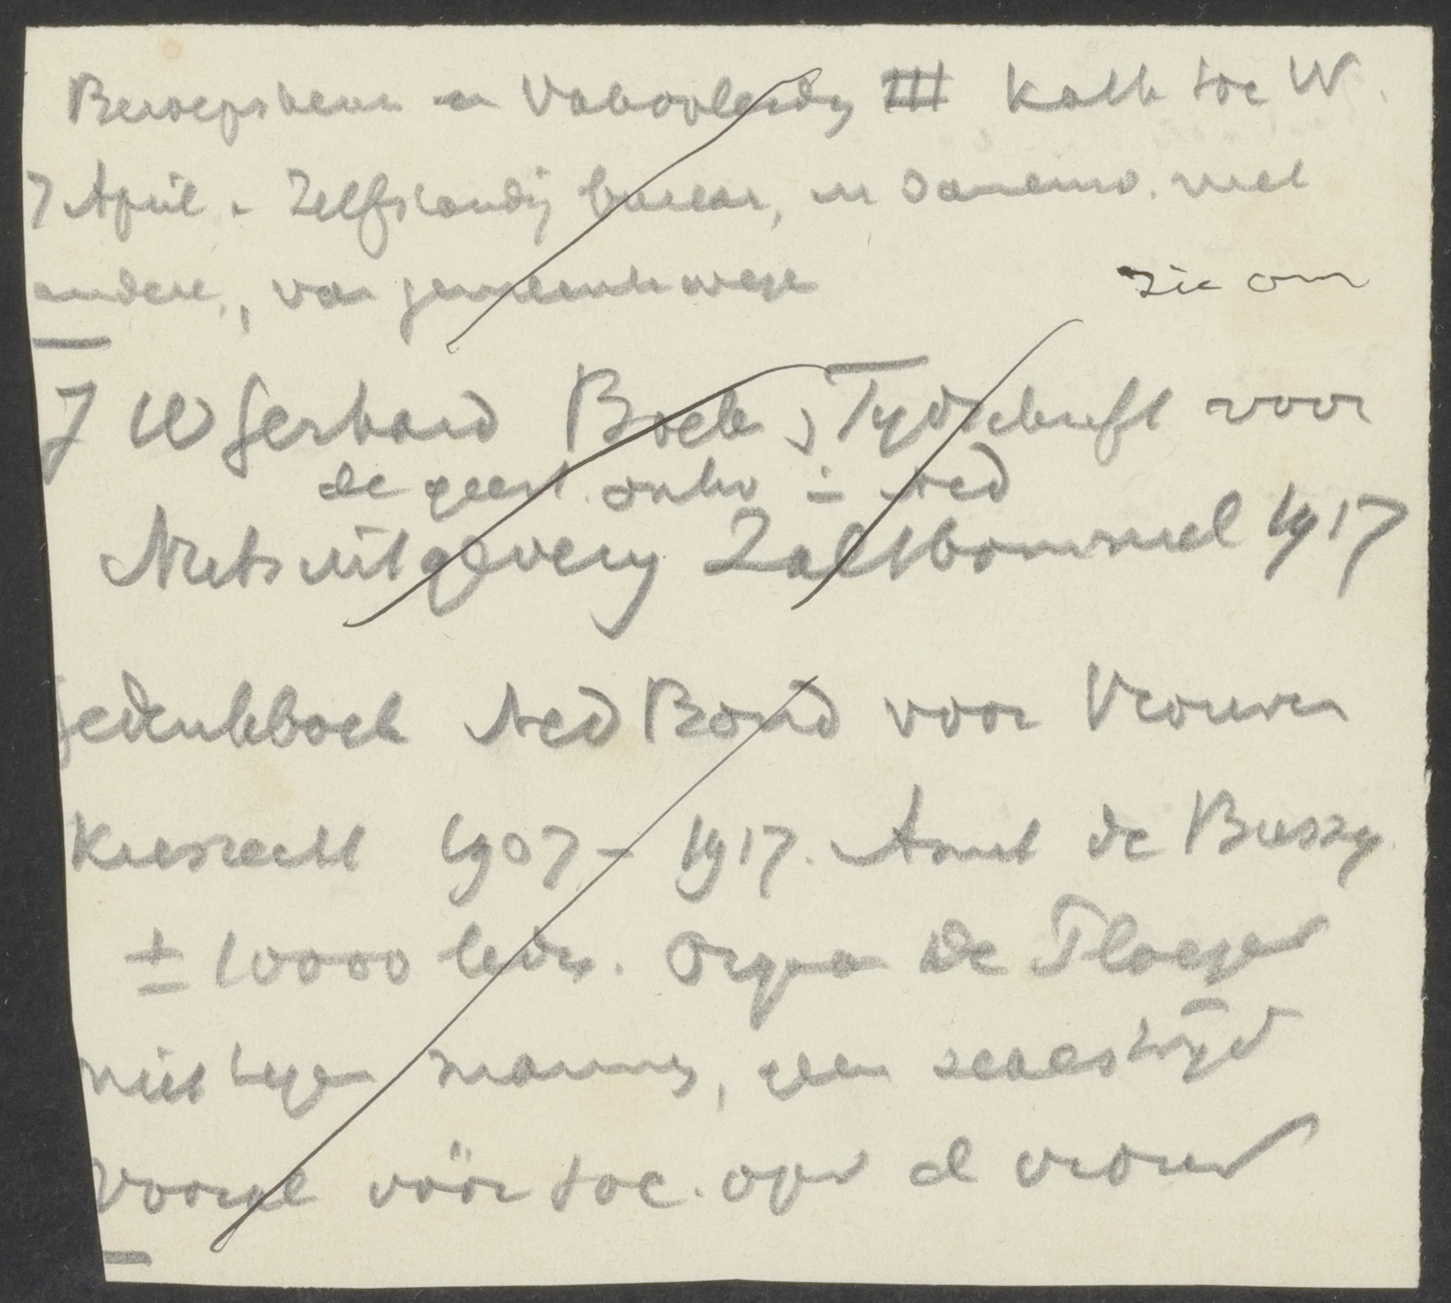 Beroepskeuze en Vakopleidg III Kath soc W.
7 April. Zelfstandig bureau, in samenw. met
andere, van gemeentewege
zie om
J W Gerhard Boek, Tydschrift voor
de geest. ontw in Ned
Nutsuitgevery Zaltbommel 1917
Gedenkboek Ned Bond voor Vrouwen
Kiesrecht 1907 - 1917. Amst de Bussy.
± 10000 leden. Orgaan De Ploeger
niet tegen mannen, geen sexestrijd
vooral vóór soc. opv d vrouw